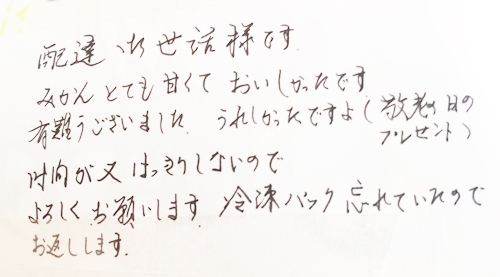 配達お世話様です.
みかん とても 甘くて おいしかったです
有難うございました. うれしかったですよ(敬老の日の
プレゼント)
時間が又 はっきりしないので
よろしく お願いします. 冷凍パック 忘れていたので
お返しします.